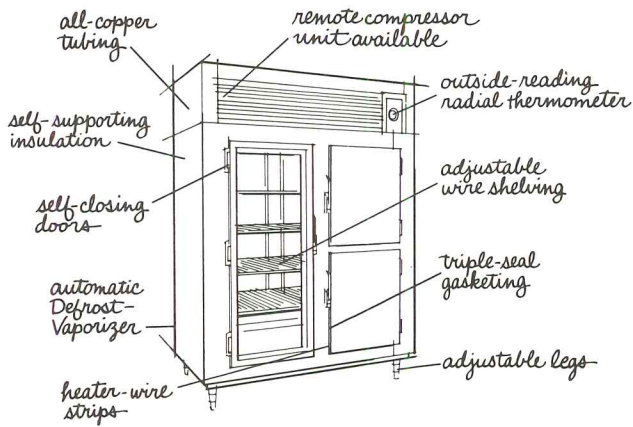 all-copper
tubing
remote compressor
unit available
outside-reading
radial thermometer
self-supporting
insulation
adjustable
wire shelving
self-closing
doors
triple-seal
gasketing
automatic
Defrost-
Vaporizer
adjustable legs
heater-wire
strips